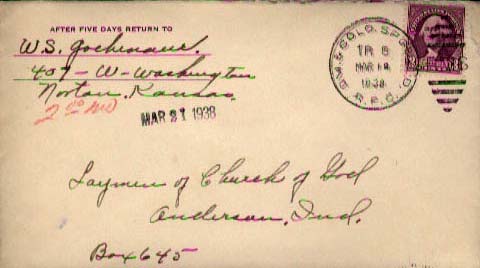 AFTER FIVE DAYS RETURN TO
W.S. Gochenaur.
407-W-Washington
Norton, Kansas.
2nd MD
MAR 21 1938
TR 8
MAR 18
1938
R.P.O.
Laymen of Church of God
Anderson, Ind.
Box 645